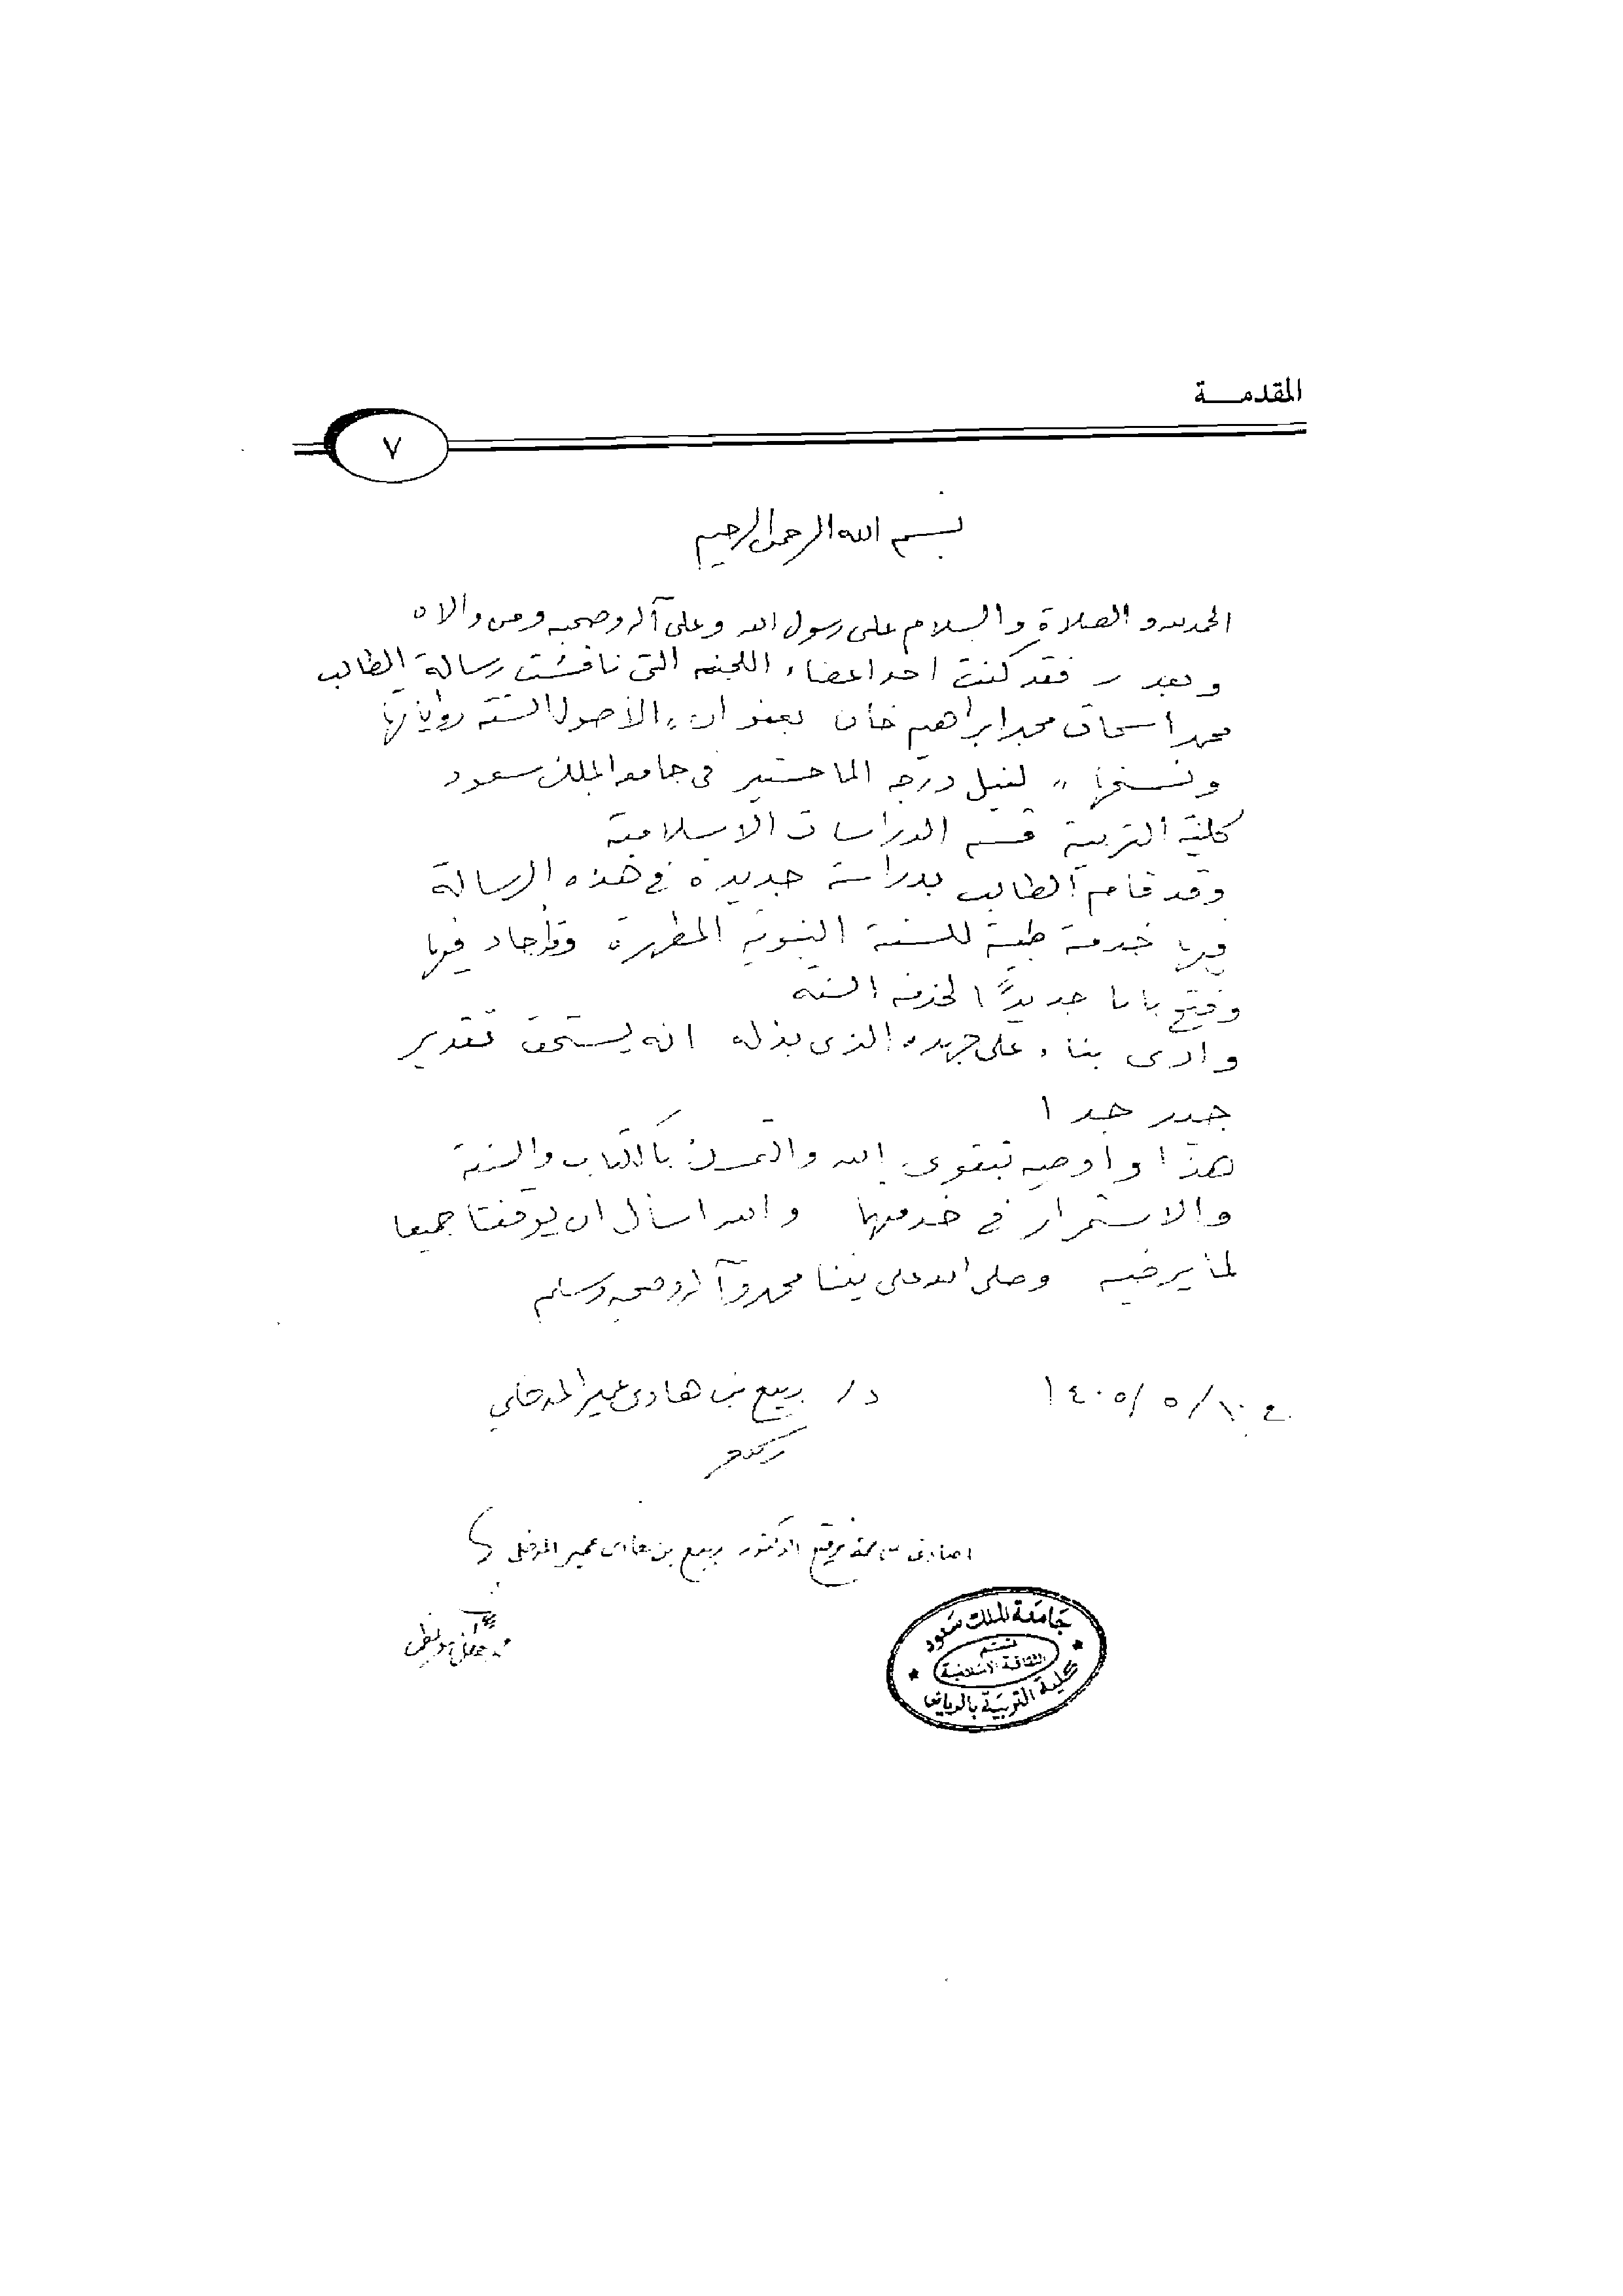 المقدمـــة
٧
بسم الله الرحمن الرحيم
الحمد لله والصلاة والسلام على رسول الله وعلى آله وصحبه ومن والاه
وبعد ـ فقد كنت احد اعضاء اللجنه التى ناقشت رسالة الطالب
محمد اسحاق محمد ابراهيم خان بعنوان "الأصول الستة رواياتها
ونسخها" لنيل درجه الماجستير فى جامعه الملك سعود
كلية التربية قسم الدراسات الاسلامية
وقد قام الطالب بدراسة جديدة في هذه الرسالة
فيها خدمة طيبة للسنة النبويه المطهرة وقد أجاد فيها
وفتح بابا جديدًا لخدمه السنة
وارى بناء على جهده الذى بذله انه يستحق تقدير
جيد جدا
هذا واوصيه بتقوى الله والتمسك بالكتاب والسنة
والاستمرار في خدمتها والله اسأل ان يوفقنا جميعا
لما يرضيه وصلى الله على نبينا محمد وآله وصحبه وسلم
١٤٠٥/٥/١٠
د/ ربيع بن هادى عمير المدخلي
توقيع الدكتور ربيع بن هادى عمير المدخلى
جامعة الملك سعود
قسم
الثقافة الإسلامية
كلية التربية بالرياض